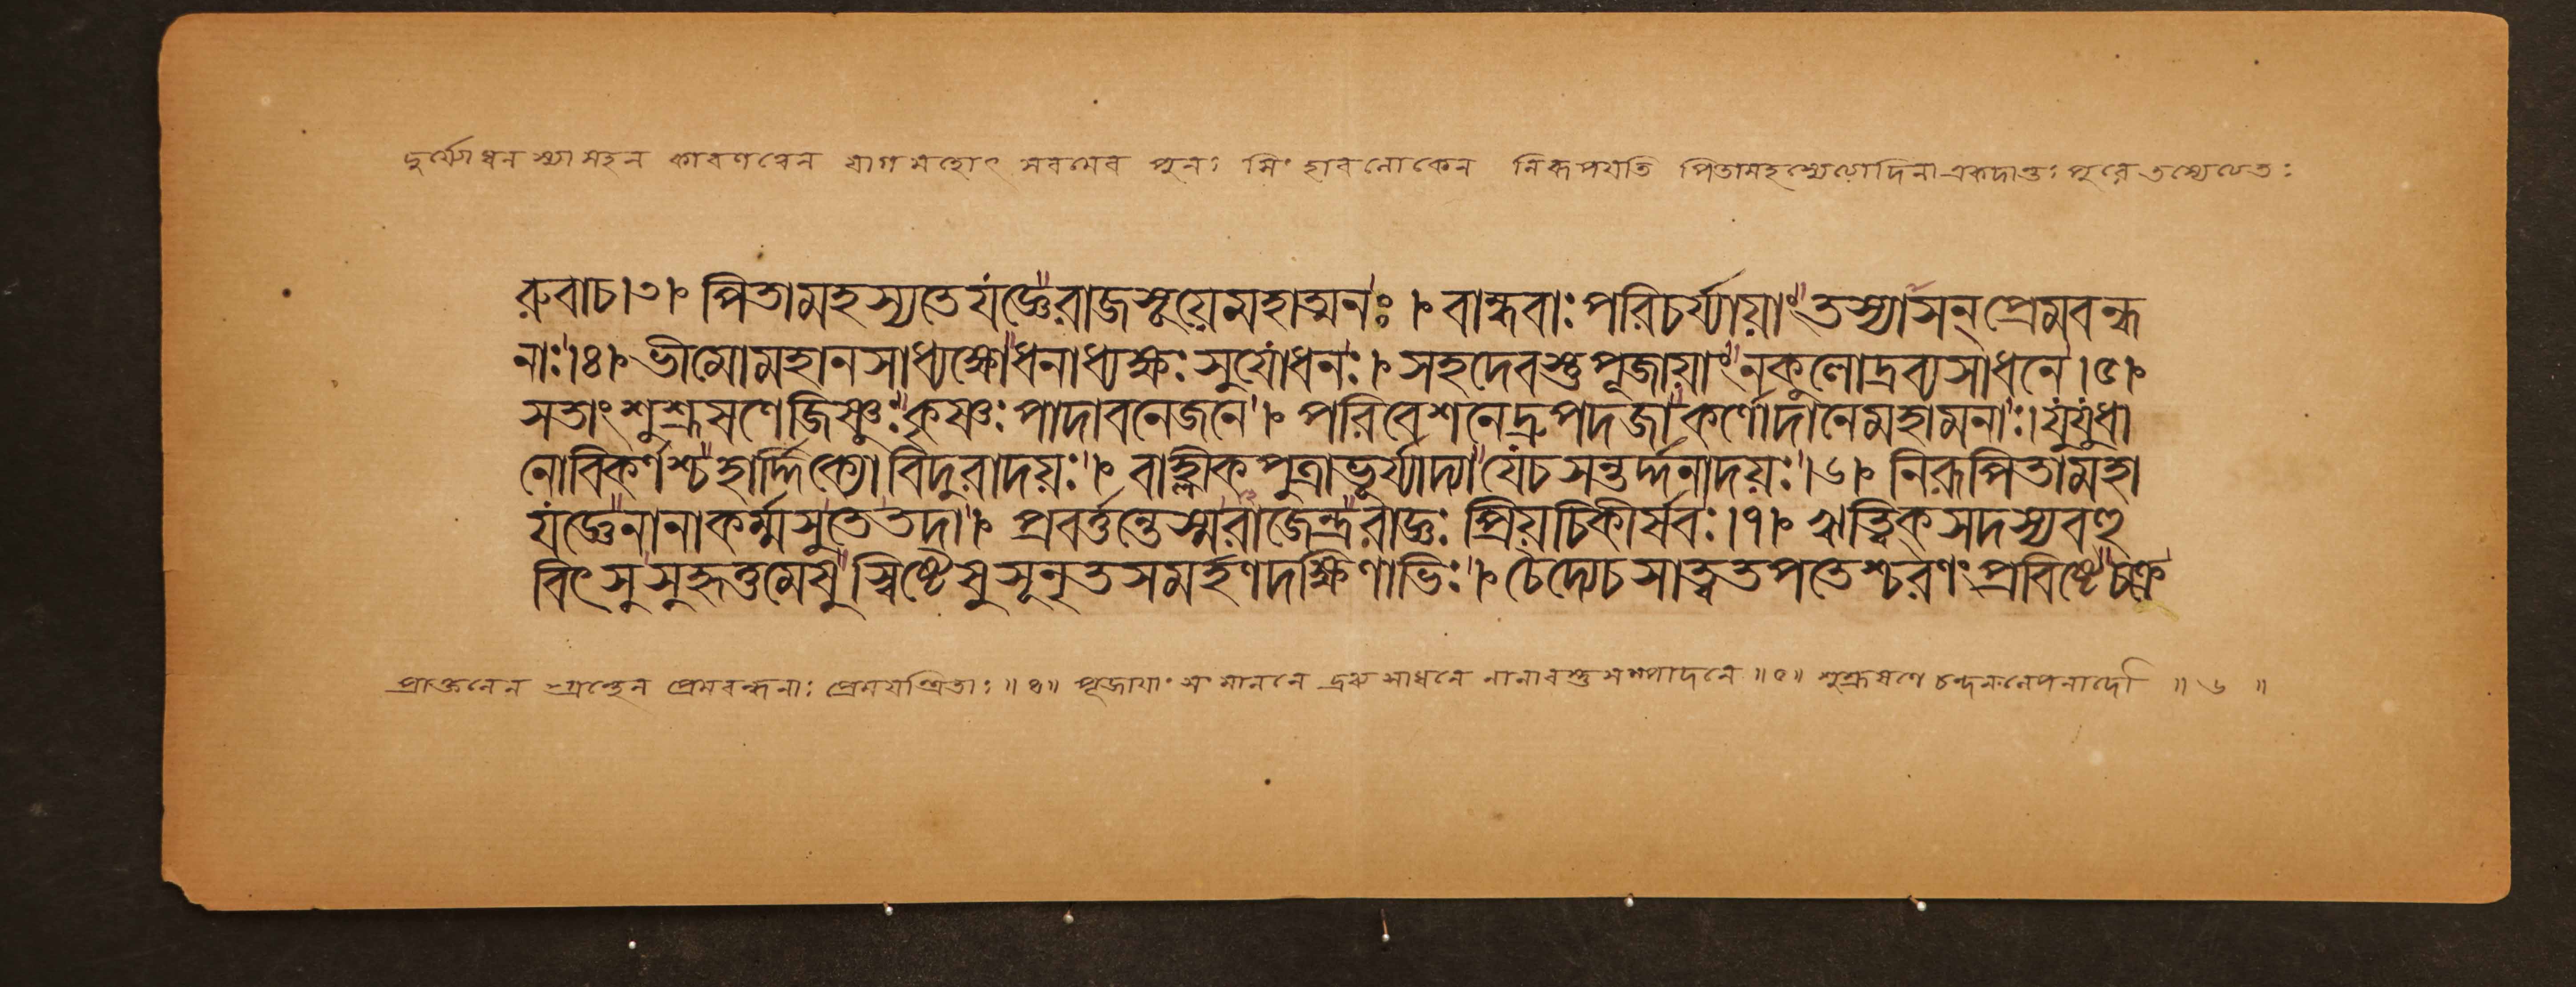 দুর্যোধনস্যাসহন কারণত্বেন যাগমহোৎসবমেব পুনঃ সিংহাবলোকেন নিরূপযতি পিতামহস্যেত্যাদিনা একদান্তঃ পুরে তস্যেত্যতঃ
রুবাচ।৩।৹ পিতামহস্যতেযজ্ঞেরাজসূয়েমহাত্মনঃ।৹ বান্ধবাঃপরিচর্য্যায়াংতস্যাসন্প্রেমবন্ধ
নাঃ।৪।৹ ভীমোমহানসাধ্যক্ষোধনাধ্যক্ষঃসুযোধনঃ।৹ সহদেবস্তুপূজায়াংনকুলোদ্রব্যসাধনে।৫।৹
সতাংশুশ্রূষণেজিষ্ণুঃকৃষ্ণঃপাদাবনেজনে।৹ পরিবেশনেদ্রুপদজাকর্ণোদানেমহামনাঃ।যুযুধা
নোবিকর্ণশ্চহার্দ্দিক্যোবিদুরাদয়ঃ।৹ বাহ্লীকপুত্রাভূর্য্যাদ্যাযেচসন্তর্দ্দনাদয়ঃ।৬।৹ নিরূপিতামহা
যজ্ঞেনানাকর্ম্মসুতেতদা।৹ প্রবর্ত্তন্তেস্মরাজেন্দ্ররাজ্ঞঃপ্রিয়চিকীর্ষবঃ।৭।৹ ঋত্বিক্সদস্যবহু
বিৎসুসুহৃত্তমেষুস্বিষ্টেষুসূনৃতসমর্হণদক্ষিণাভিঃ।৹ চৈদ্যেচসাত্বতপতেশ্চরণংপ্রবিষ্টেচক্রু
প্রাক্তনেন গ্রন্থেন প্রেমবন্ধনাঃ প্রেমযন্ত্রিতাঃ ॥৪॥ পূজাযাং সংমাননে দ্রব্যসাধনে নানাবস্তুসম্পাদনে ॥৫॥ শুশ্রূষণে চন্দনলেপনাদৌ ॥৬॥